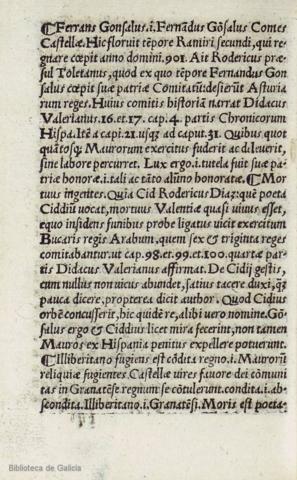 ¶Ferrans Gonsalus.i. Fernãdus Gõsalus Comes
Castellæ. Hic floruit tẽpore Ramiri secundi, qui re-
gnare cœpit anno domini.901. Ait Rodericus præ-
sul Toletanus, quod ex quo tẽpore Fernandus Gon
salus cœpit suæ patriæ Comitatũ: desierũt Asturia
rum reges. Huius comitis historiã narrat Didacus
Valerianus.16.et.17. cap.4. partis Chronicorum
Hispa. Itẽ a capi.21. usqȝ ad caput.31. Quibus quot
quã tosqȝ Maurorum exercitus fuderit ac deleuerit,
sine labore percurret. Lux ergo.i. tutela fuit suæ pa-
triæ honoræ.i. tali ac tãto alũno honoratæ. ¶Mor
tuus ingentes. Quia Cid Rodericus Diaz: quẽ poeta
Ciddiũ uocat, mortuus Valentiæ quasi viuus esset,
equo insidens funibus probe ligatus vicit exercitum
Bucaris regis Arabum, quem sex & triginta reges
comitabantur. ut cap.98. et.99. et.100. quartæ par-
tis Didacus Valerianus affirmat. De Cidij gestis,
cum nullus non vicus abundet, satius tacere duxi, qȝ
pauca dicere, propterea dicit author. Quod Cidius
orbẽ concusserit, hic quidẽ re, alibi vero nomine. Gõ
salus ergo & Ciddius licet mira fecerint, non tamen
Mauros ex Hispania penitus expellere potuerunt.
¶Illiberitano fugiens est cõdita regno.i. Maurorũ
reliquiæ fugientes. Castellæ uires fauore dei cõmuni
tas in Granatẽse regnum se cõtulerunt. condita.i. ab-
scondita. Illiberitano.i. Granatẽsi. Moris est poeta-
Biblioteca de Galicia